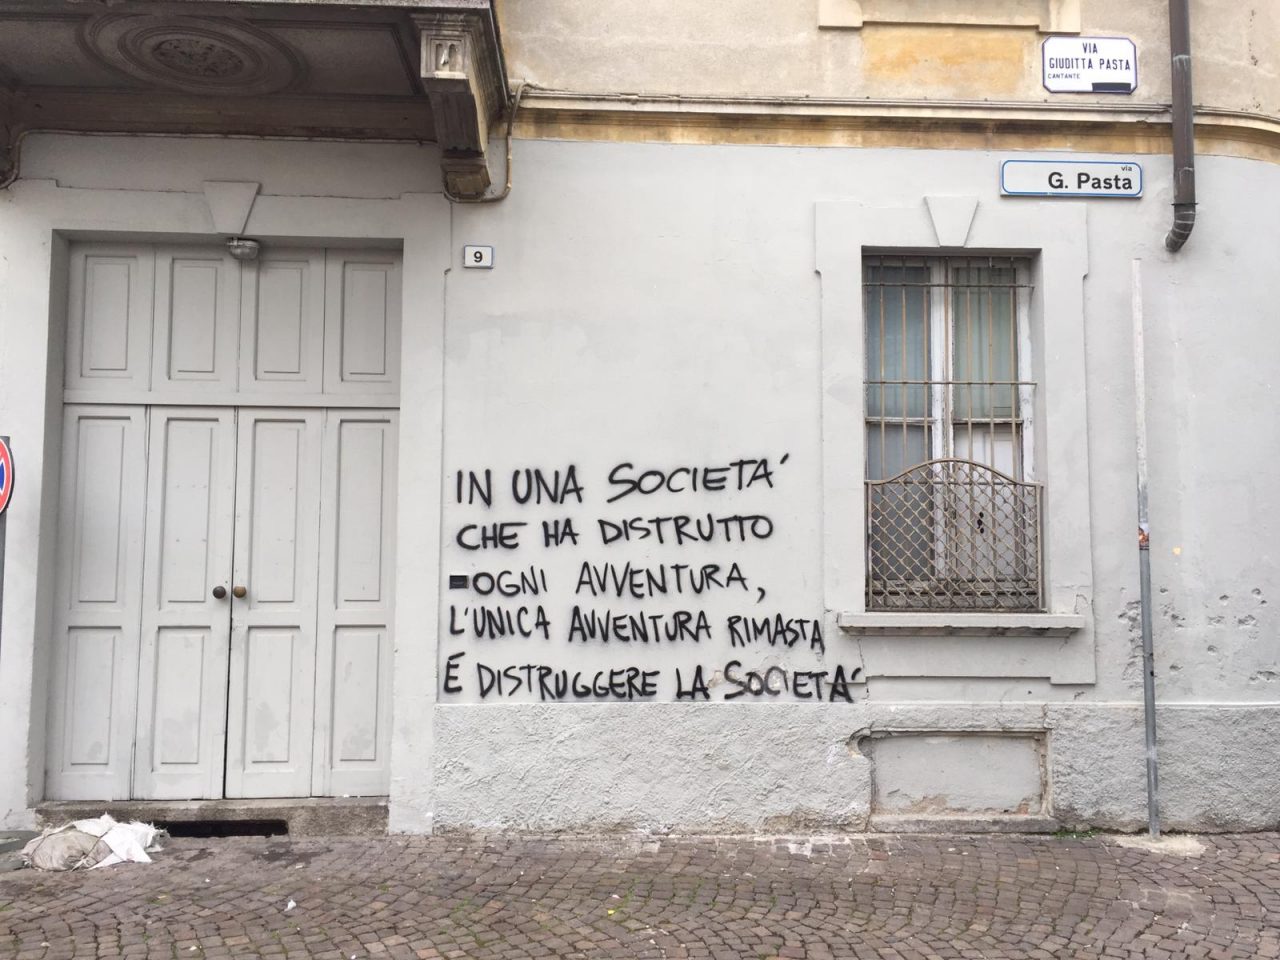 VIA
GIUDITTA PASTA
CANTANTE
via
G. Pasta
9
IN UNA SOCIETA'
CHE HA DISTRUTTO
OGNI AVVENTURA,
L'UNICA AVVENTURA RIMASTA
É DISTRUGGERE LA SOCIETA'